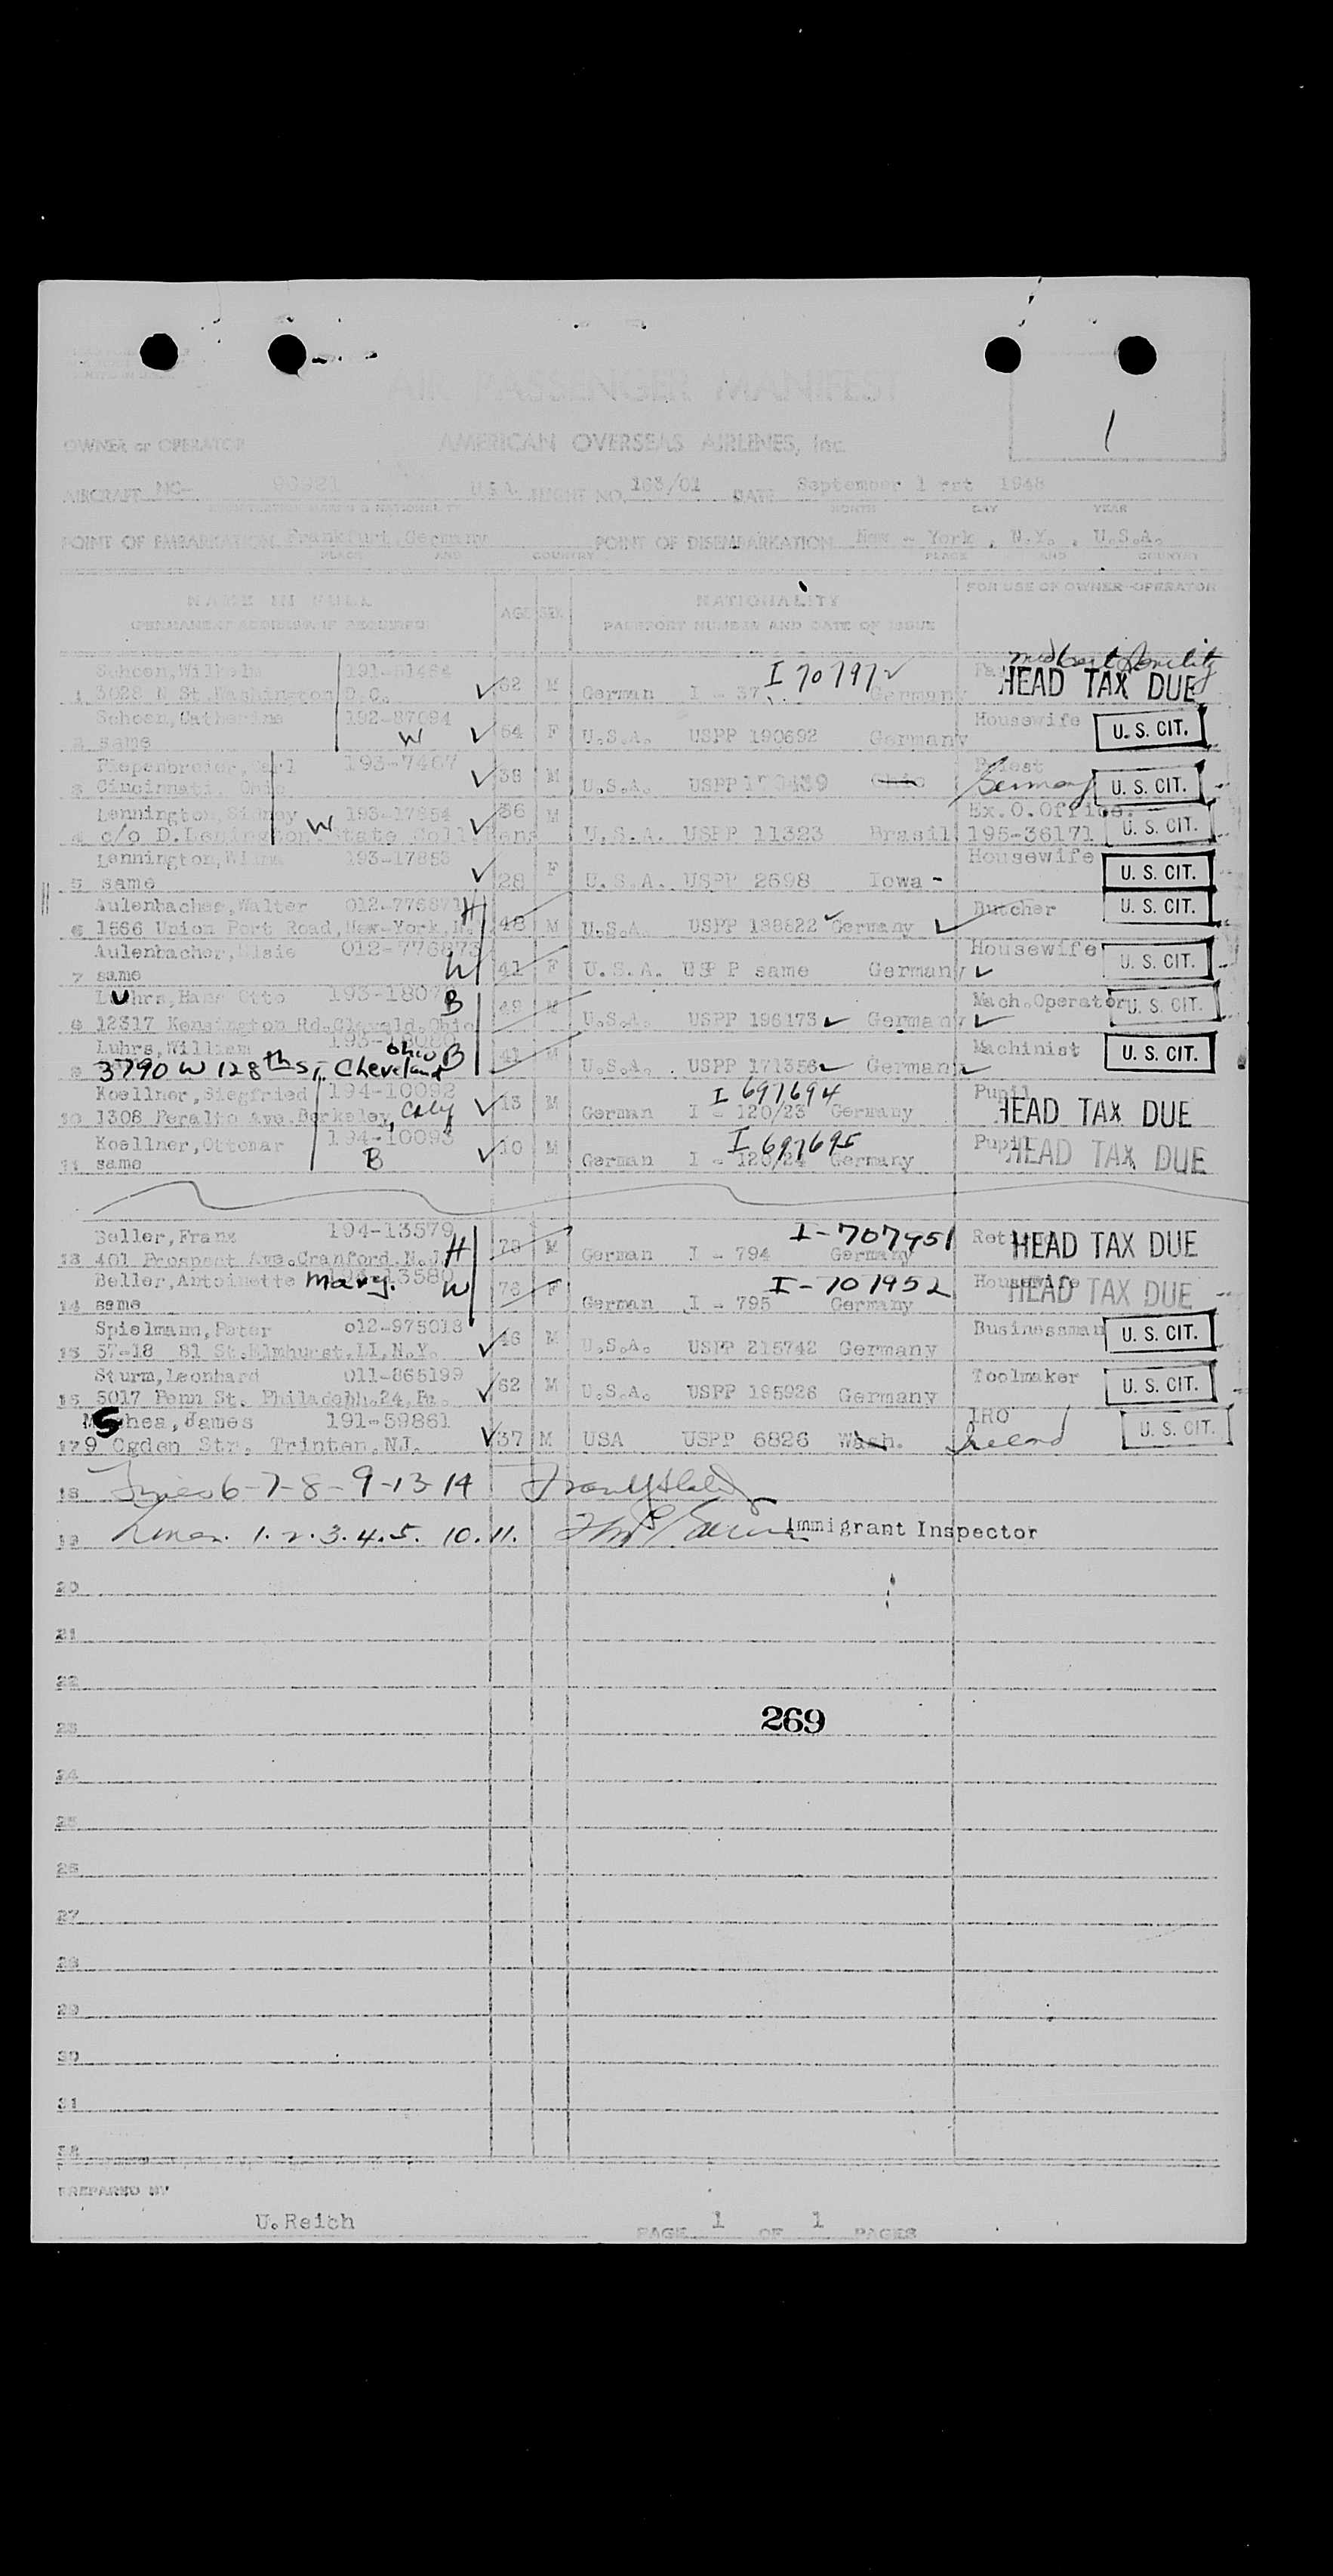 AIR PASSENGER MANIFEST
1
OWNER or OPERATOR AMERICAN OVERSEAS AIRLINES, Inc.
AIRCRAFT NC- 90921 U.S.A. FLIGHT NO. 163/01 DATE September 1 rst 1948
MONTH DAY YEAR
POINT OF EMBARKATION Frankfurt,Germany POINT OF DISEMBARKATION New - York , N.Y. , U.S.A.
PLACE AND COUNTRY PLACE AND COUNTRY
NAME IN FULL AGE SEX NATIONALITY FOR USE OF OWNER-OPERATOR
(PERMANENT ADDRESS IF REQUIRED) PASSPORT NUMBER AND DATE OF ISSUE
Schoen,Wilhelm 191-51484 I 707972
1 3028 N St.Washington D.C. 62 M German I - 37 Germany HEAD TAX DUE
Schoen,Catherina 192-87094 Housewife
2 same W 54 F U.S.A. USPP 190692 Germany U. S. CIT.
Piepenbreier,Carl 193-7407 Priest
3 Cincinnati, Ohio 38 M U.S.A. USPP Ohio Germany U. S. CIT.
Lennington,Sidney W 193-17954 36 M Ex.O.Office.
4 c/o D.Lenington State U.S.A. USPP 11323 Brasil 195-36171 U. S. CIT.
Lennington,Wilma 193-17953 Housewife
5 same 28 F U.S.A. USPP 2698 Iowa - U. S. CIT.
Aulenbacher,Walter 012-776871 H Butcher U. S. CIT.
6 1566 Union Port Road,New-York,N. 48 M U.S.A. USPP 188822 Germany
Aulenbacher,Elsie 012-776873 Housewife
7 same W 41 F U.S.A. USP P same Germany U. S. CIT.
Luhrs,Hans Otto 193-1807 B 49 M Mach.Operator U. S. CIT.
8 12317 Kensington Rd. Ohio U.S.A. USPP 196173 Germany
Luhrs,William Ohio B 41 M Machinist U. S. CIT.
9 3790 W 128th St, Cheveland U.S.A. USPP 171356 Germany
Koellner,Siegfried 194-10092 I 697694 Pupil
10 1308 Peralto Ave.Berkeley, Caly 13 M German I - 120/23 Germany HEAD TAX DUE
Koellner,Ottomar 194-10093 I 697695 Pupil
11 same B 10 M German I - 120/24 Germany HEAD TAX DUE
Beller,Franz 194-13579 I-707951
13 401 Prospect Ave.Cranford.N.J. H M German I - 794 Germany HEAD TAX DUE
Beller,Antoinette Mary. 13580 I-707952 Housewife
14 same W 76 F German I - 795 Germany HEAD TAX DUE
Spielmann,Peter 012-975013 Businessman
15 37-18 81 St.Elmhurst.LI,N.Y. 46 M U.S.A. USPP 215742 Germany U. S. CIT.
Sturm,Leonhard 011-865199 Toolmaker
16 5017 Penn St. Philadephh.24,Pa. 62 M U.S.A. USPP 195926 Germany U. S. CIT.
McShea,James 191-59861 IRO
17 9 Ogden Str, Trinten,NJ. 37 M USA USPP 6826 Wash. Ireland U. S. CIT.
18 Lines 6-7-8-9-13-14
19 Lines. 1.2.3.4.5. 10.11. Immigrant Inspector
20
21
22
23 269
24
25
26
27
28
29
30
31
32
PREPARED BY
U.Reich PAGE 1 OF 1 PAGES